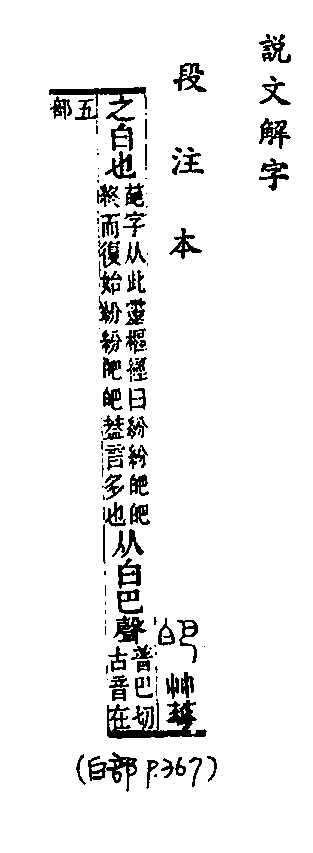 説文解字
段注本
皅 艸華
之白也
葩字从此靈樞經曰紛紛皅皅
終而復始紛紛皅皅葢言多也
从白巴聲
普巴切
古音在
五
部
(白部 P.367)